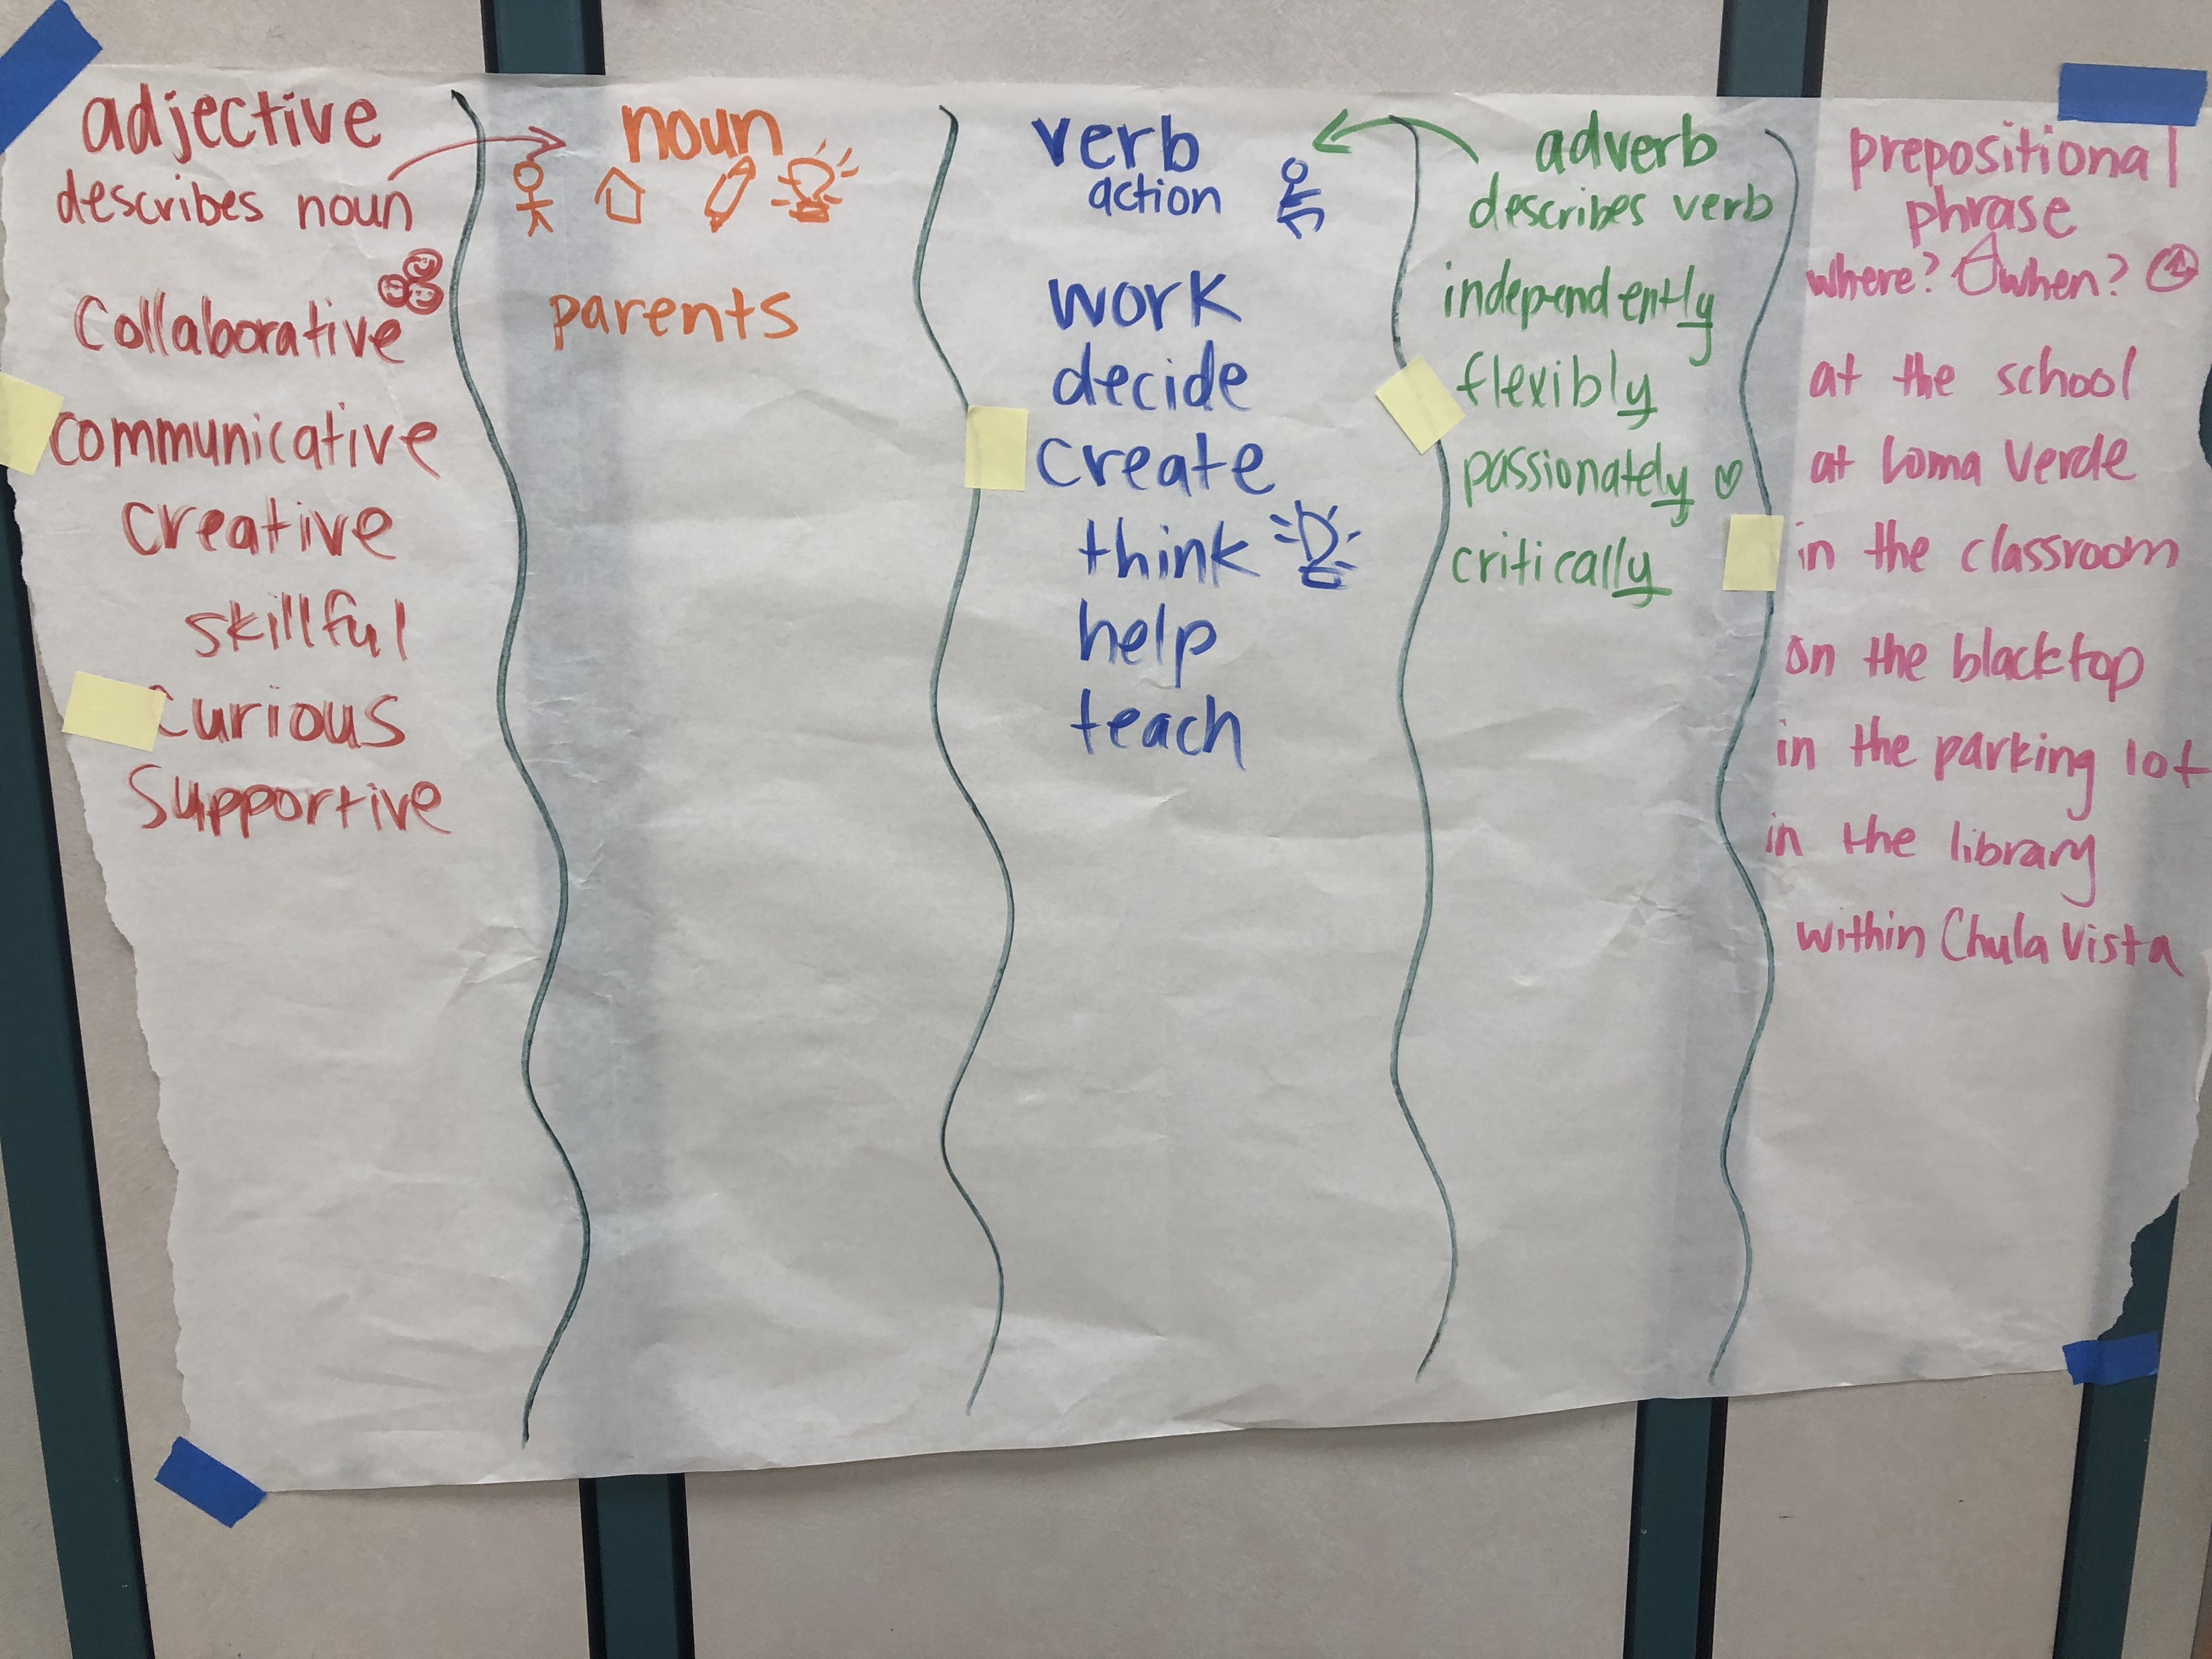 adjective
describes noun
Collaborative
communicative
creative
skillful
curious
Supportive
noun
parents
verb
action
work
decide
create
think
help
teach
adverb
describes verb
independently
flexibly
passionately
critically
prepositional
phrase
where? when?
at the school
at Loma Verde
in the classroom
on the blacktop
in the parking lot
in the library
within Chula Vista